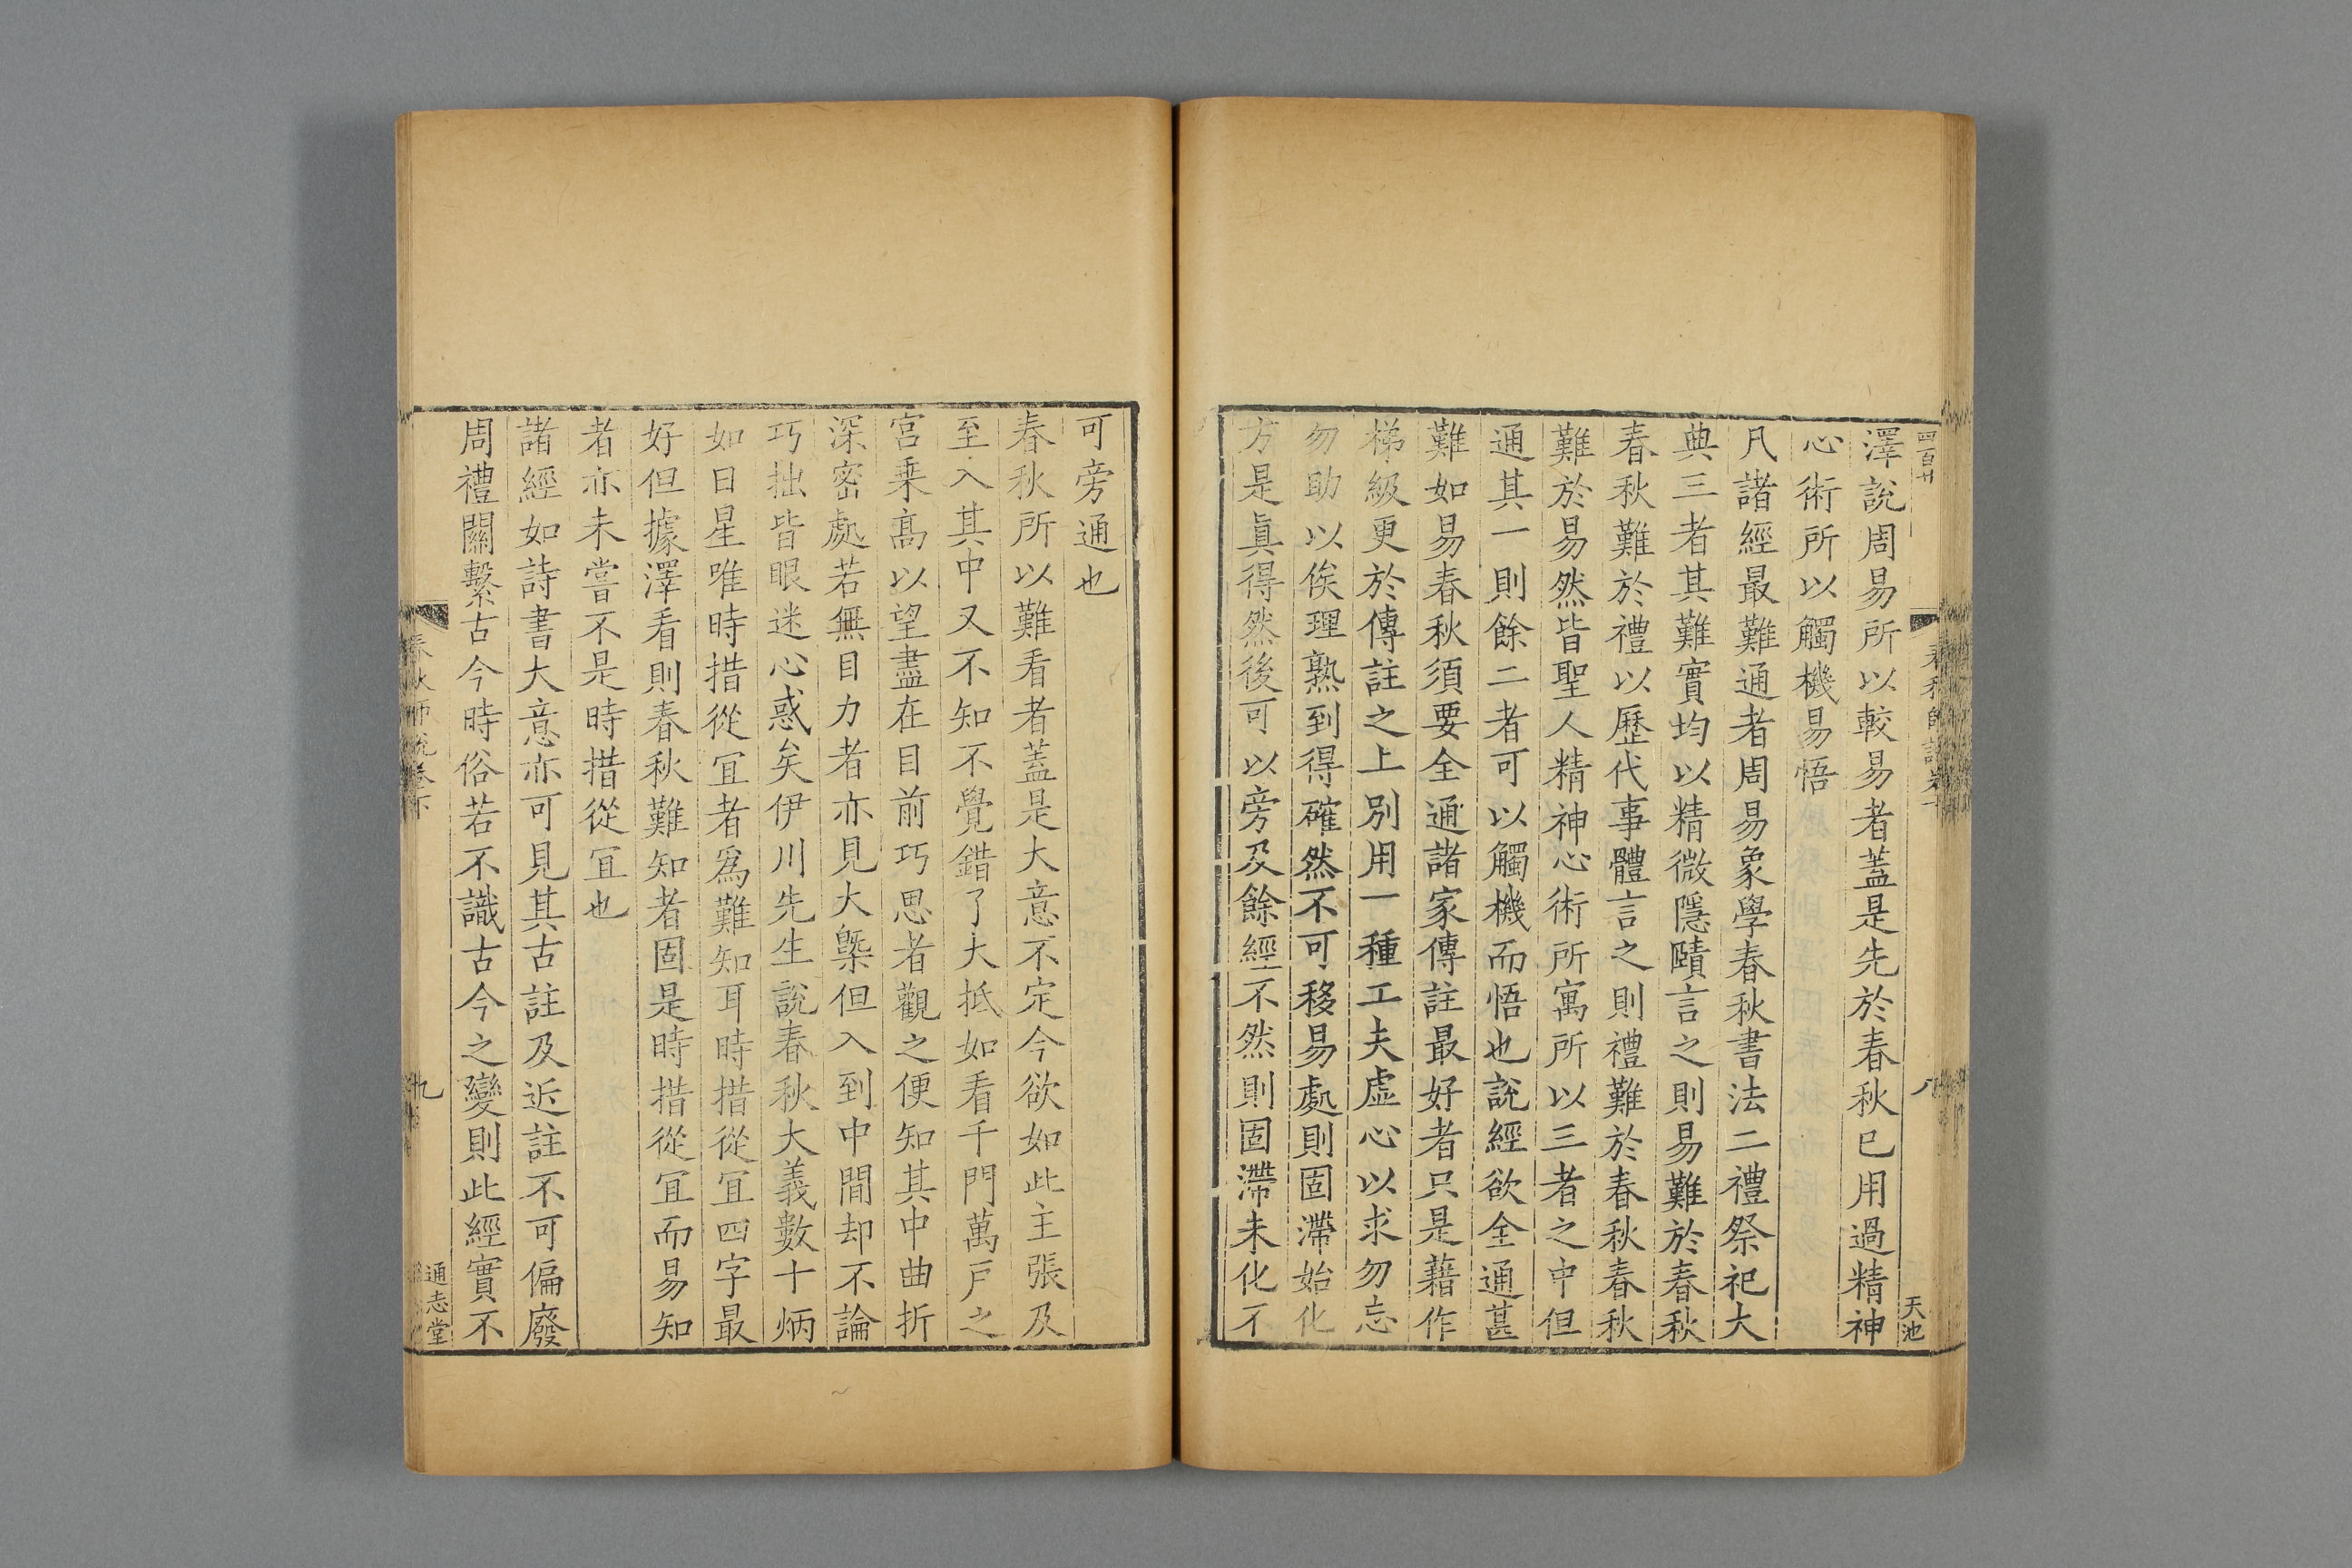 四百廿
春秋師說卷下
八
天池
澤說周易所以較易者蓋是先於春秋已用過精神
心術所以觸機易悟
凡諸經最難通者周易象學春秋書法二禮祭祀大
典三者其難實均以精微隱賾言之則易難於春秋
春秋難於禮以歷代事體言之則禮難於春秋春秋
難於易然皆聖人精神心術所寓所以三者之中但
通其一則餘二者可以觸機而悟也說經欲全通甚
難如易春秋須要全通諸家傳註最好者只是藉作
梯級更於傳註之上別用一種工夫虛心以求勿忘
勿助以俟理熟到得確然不可移易處則固滯始化
方是眞得然後可以旁及餘經不然則固滯未化不
可旁通也
春秋所以難看者蓋是大意不定今欲如此主張及
至入其中又不知不覺錯了大抵如看千門萬戶之
宮乗高以望盡在目前巧思者觀之便知其中曲折
深密處若無目力者亦見大槩但入到中間却不論
巧拙皆眼迷心惑矣伊川先生說春秋大義數十炳
如日星唯時措從宜者爲難知耳時措從宜四字最
好但據澤看則春秋難知者固是時措從宜而易知
者亦未嘗不是時措從宜也
諸經如詩書大意亦可見其古註及近註不可偏廢
周禮關繫古今時俗若不識古今之變則此經實不
春秋師說卷下
九
通志堂